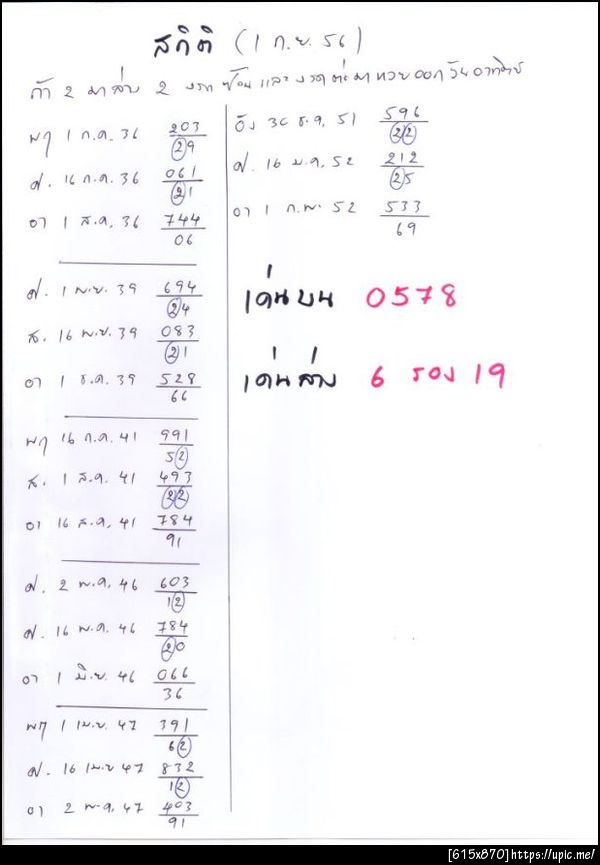 สถิติ (1 ก.ย. 56)
ถ้า 2 มาล่าง 2 งวดซ้อน และงวดต่อมาหวยออกวันอาทิตย์
พฤ 1 ก.ค. 36 203
29
ศ. 16 ก.ค. 36 061
21
อา 1 ส.ค. 36 744
06
ศ. 1 พ.ย. 39 694
24
ส. 16 พ.ย. 39 083
21
อา 1 ธ.ค. 39 528
66
พฤ 16 ก.ค. 41 991
52
ส. 1 ส.ค. 41 493
22
อา 16 ส.ค. 41 784
91
ศ. 2 พ.ค. 46 603
12
ศ. 16 พ.ค. 46 784
20
อา 1 มิ.ย. 46 066
36
พฤ 1 เม.ย. 47 391
62
ศ. 16 เม.ย 47 832
12
อา 2 พ.ค. 47 403
91
อัง 30 ธ.ค. 51 596
22
ศ. 16 ม.ค. 52 212
25
อา 1 ก.พ. 52 533
69
เด่นบน 0578
เด่นล่าง 6 รอง 19
[615x870]https://upic.me/